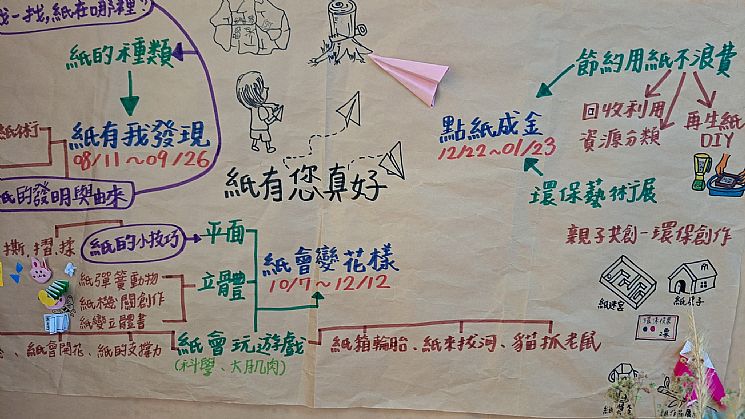 找一找,紙在哪裡?
紙的種類
紙有我發現
08/11~09/26
紙術行
紙的發明與由來
紙有您真好
點紙成金
12/22~01/23
節約用紙不浪費
回收利用
資源分類
再生紙
DIY
環保藝術展
親子共創-環保創作
紙迷宮
紙房子
撕.摺.揉
紙的小技巧
平面
立體
紙會變花樣
10/7~12/12
紙彈簧動物
紙機關創作
紙變立體書
、紙會開花、紙的支撐力
紙會玩遊戲
(科學、大肌肉)
紙箱輪胎、紙來拔河、貓抓老鼠